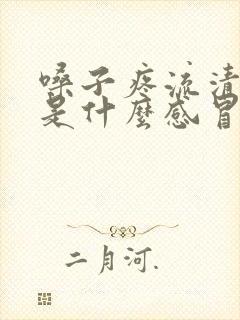 嗓子疼流清
是什麼感冒
二月河.